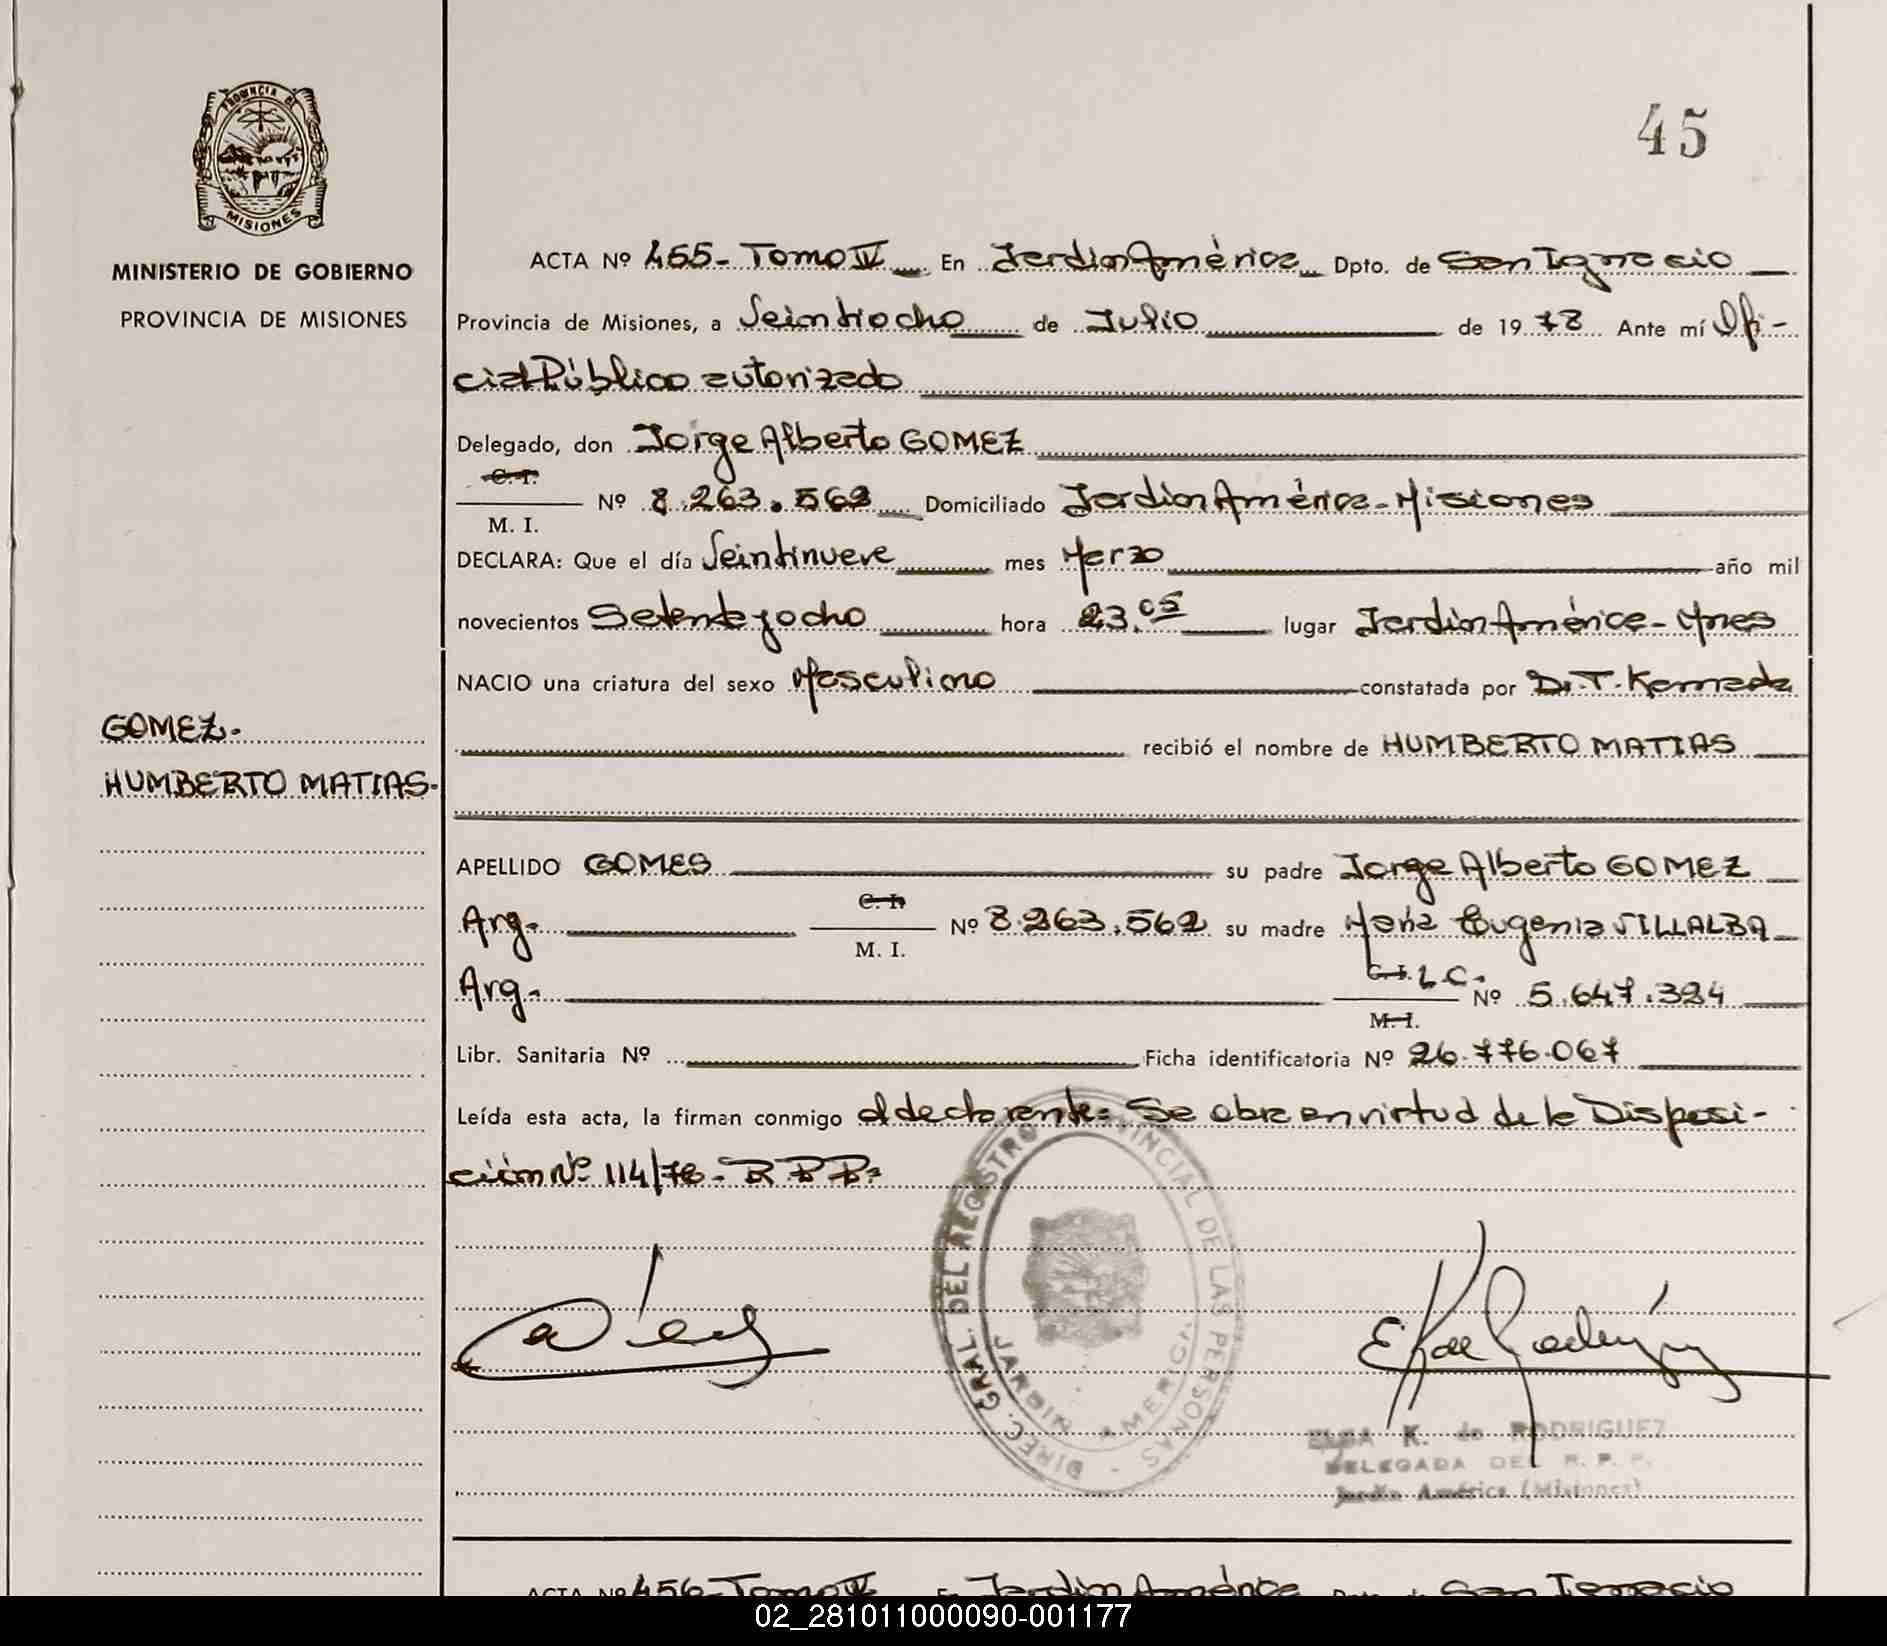 45
PROVINCIA DE
MISIONES
MINISTERIO DE GOBIERNO
PROVINCIA DE MISIONES
ACTA Nº 455- Tomo IV En Jardín América Dpto. de San Ignacio
Provincia de Misiones, a Veintiocho de Julio de 1978 Ante mí Ofi-
cial Público autorizado
Delegado, don Jorge Alberto GOMEZ
C. I.
Nº 8.263.562 Domiciliado Jardín América- Misiones
M. I.
DECLARA: Que el día Veintinueve mes Marzo año mil
novecientos Setenta y ocho hora 23.05 lugar Jardín América- Mnes
NACIO una criatura del sexo Masculino constatada por Dr. T. Kameda
GOMEZ.
recibió el nombre de HUMBERTO MATIAS
HUMBERTO MATIAS.
APELLIDO GOMES su padre Jorge Alberto GOMEZ
C. I.
Arg. Nº 8.263.562 su madre María Eugenia VILLALBA
M. I.
C. I. L.C.
Arg. Nº 5.647.324
M. I.
Libr. Sanitaria Nº Ficha identificatoria Nº 26.776.067
Leída esta acta, la firman conmigo el declarante= Se labra en virtud de la Disposi-
ción Nº 114/78- R.P.P.=
DIREC. GRAL. DEL REGISTRO PROVINCIAL DE LAS PERSONAS -
JARDIN AMERICA
ELBA K. de RODRIGUEZ
DELEGADA DEL R. P. P.
Jardín América (Misiones)
ACTA Nº 456- Tomo IV En Jardín América Dpto. de San Ignacio
02_281011000090-001177